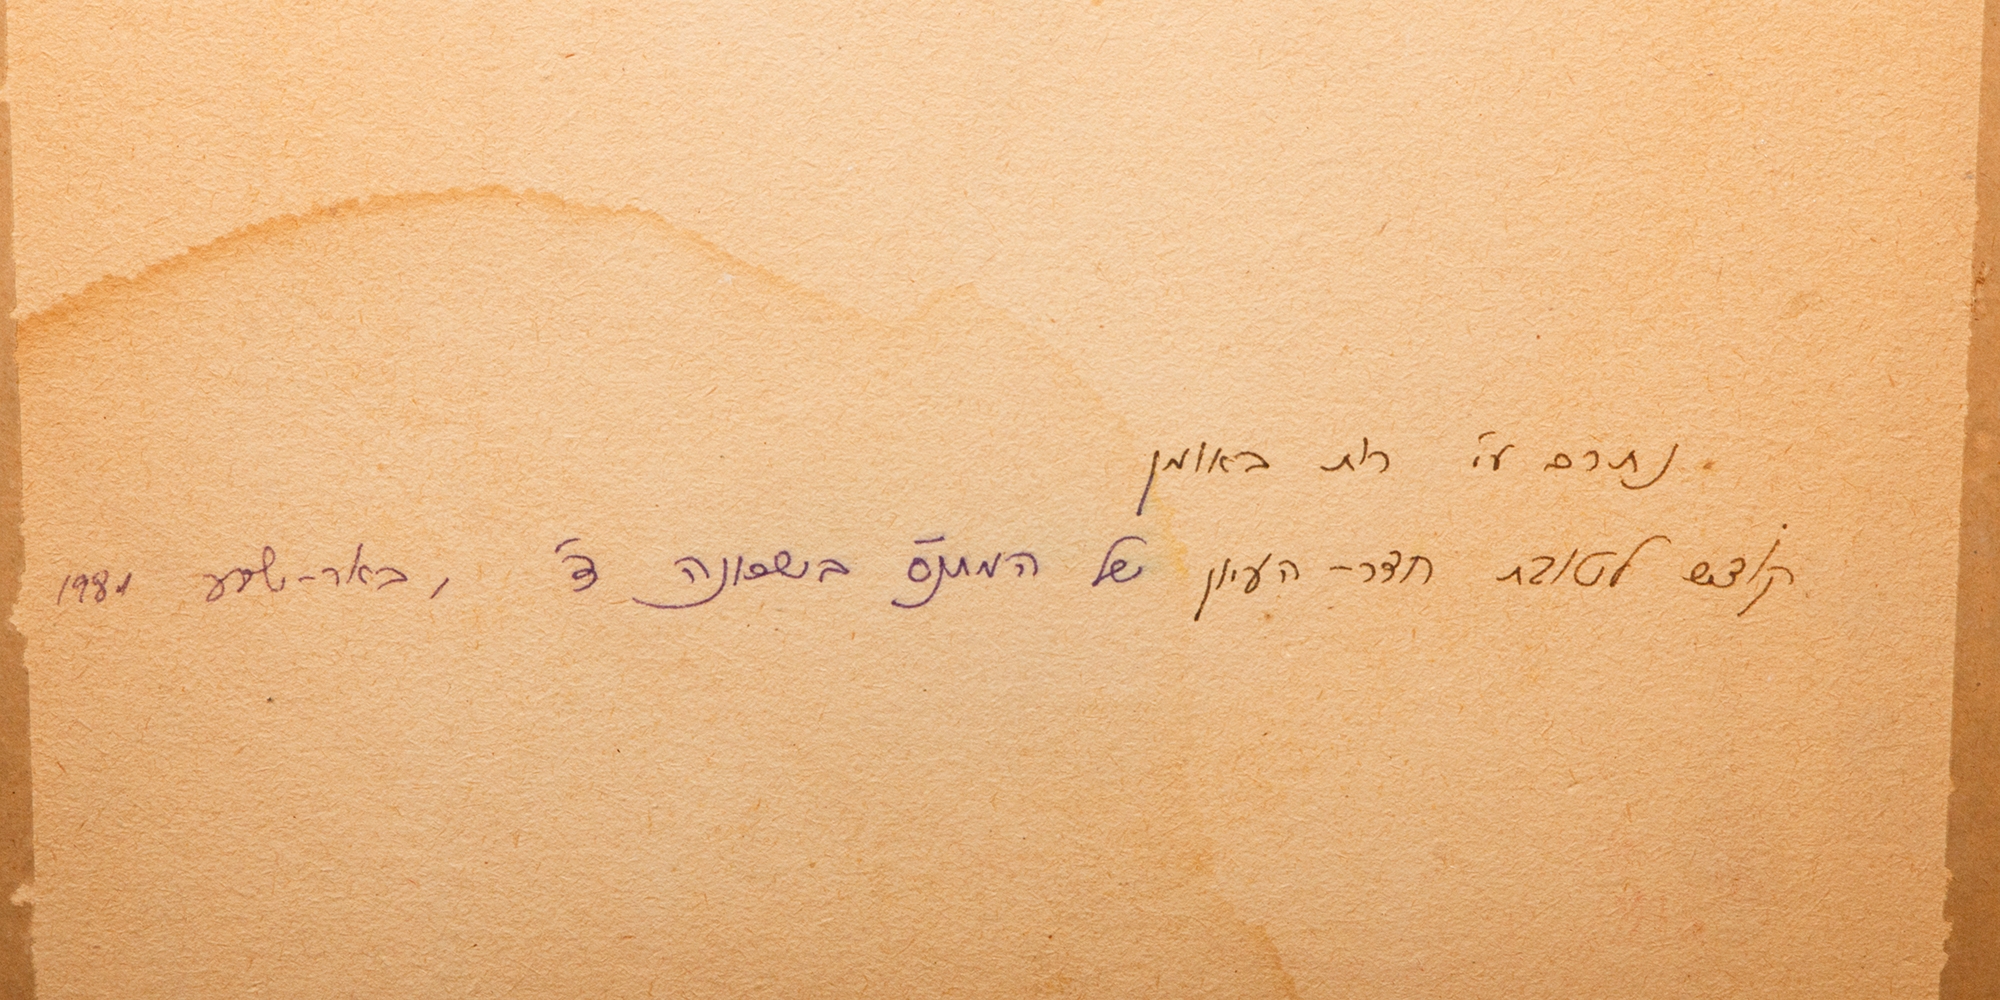 נתרם ע"י רות באומן
קודש לטובת חדר-העיון של המתנ"ס בשכונה ד', באר-שבע 1981